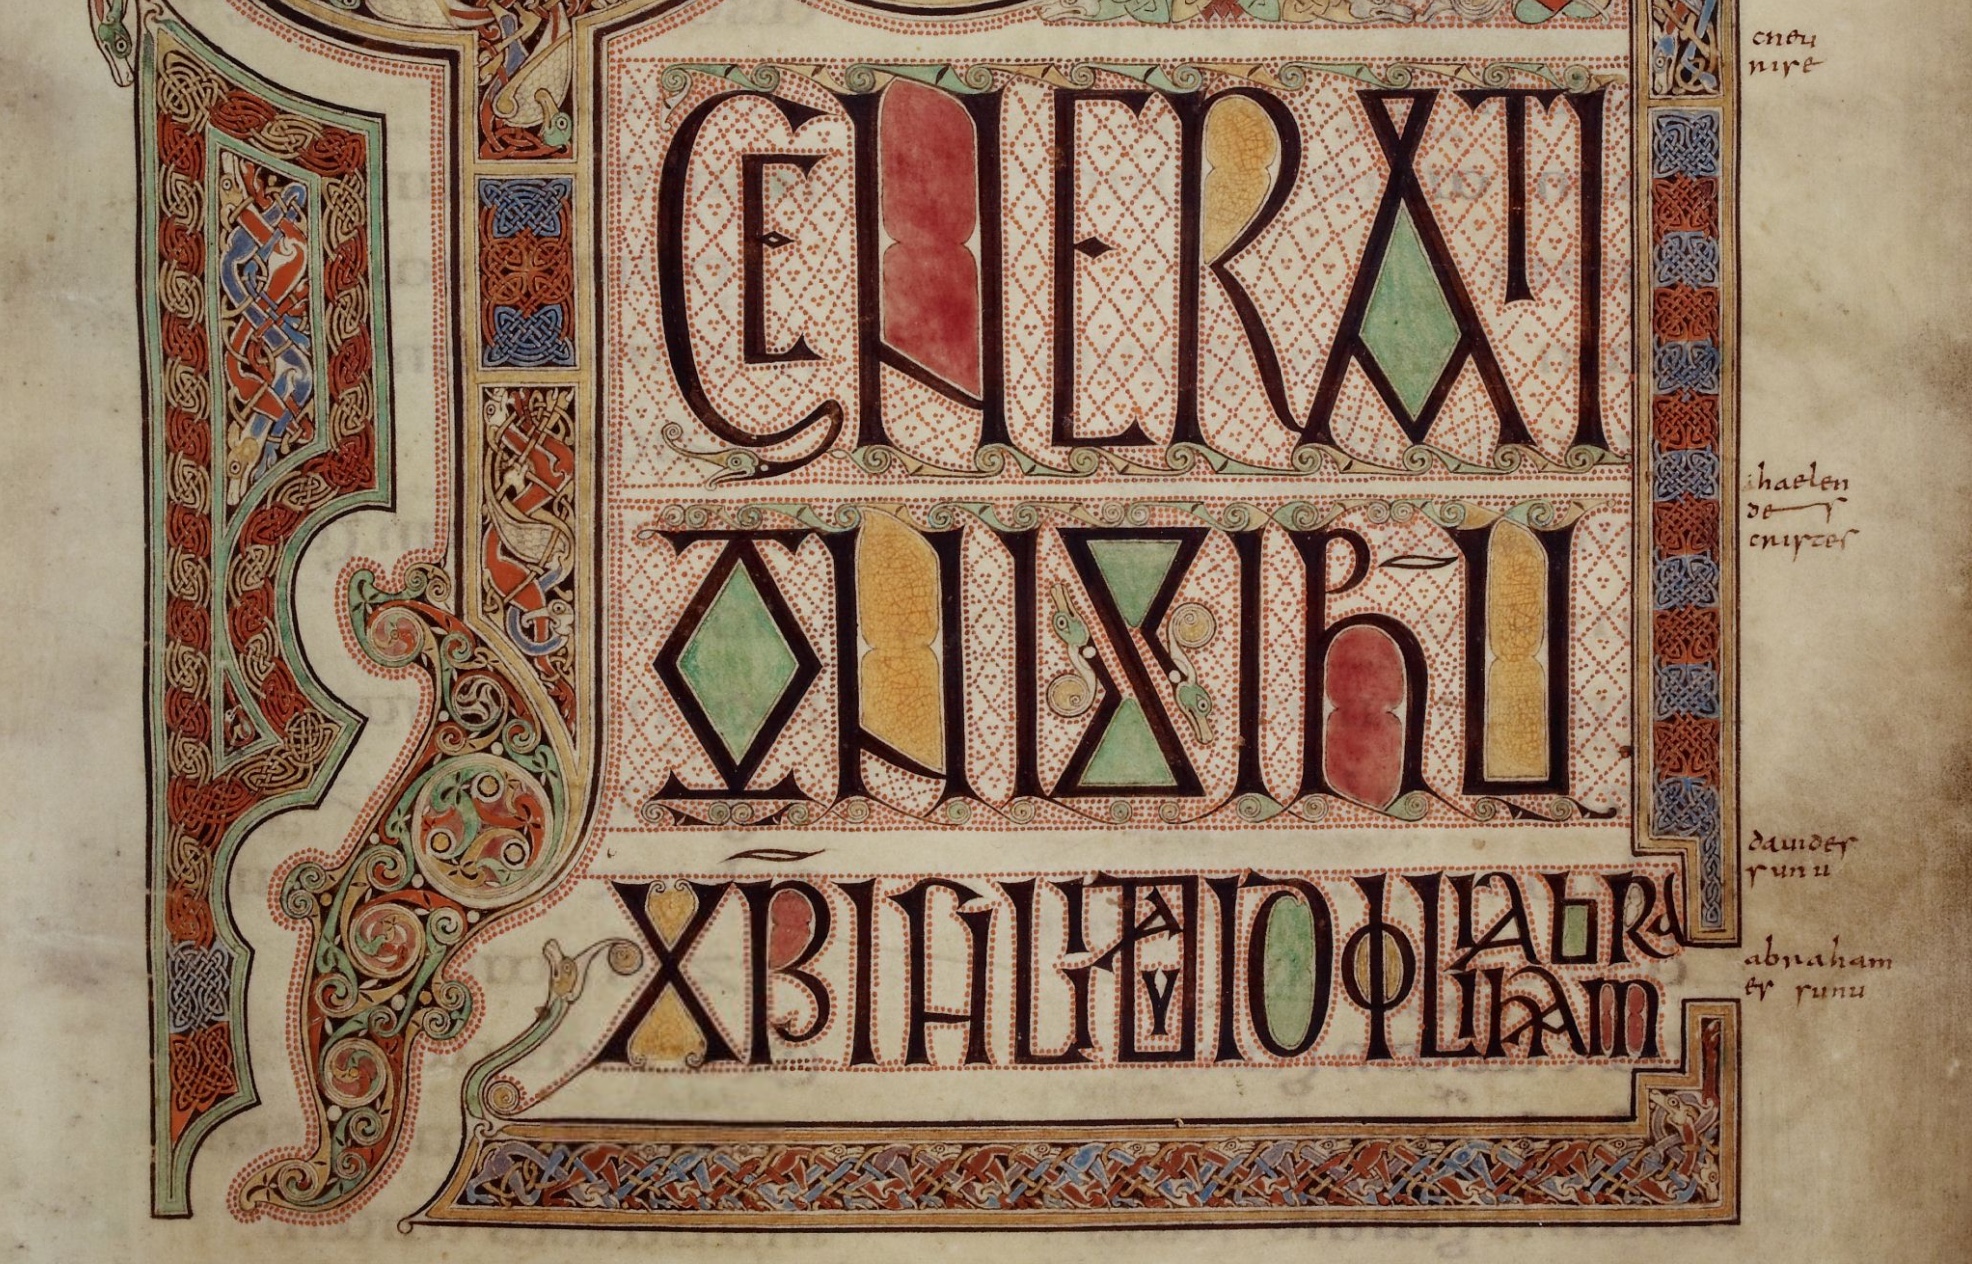 GENERATI
ONIS IHU̅
X̅BI FILII DAVID ΦILII ABRA
HAM
cneu
nise
haelen
des
cristes
dauides
sunu
abraham
es sunu